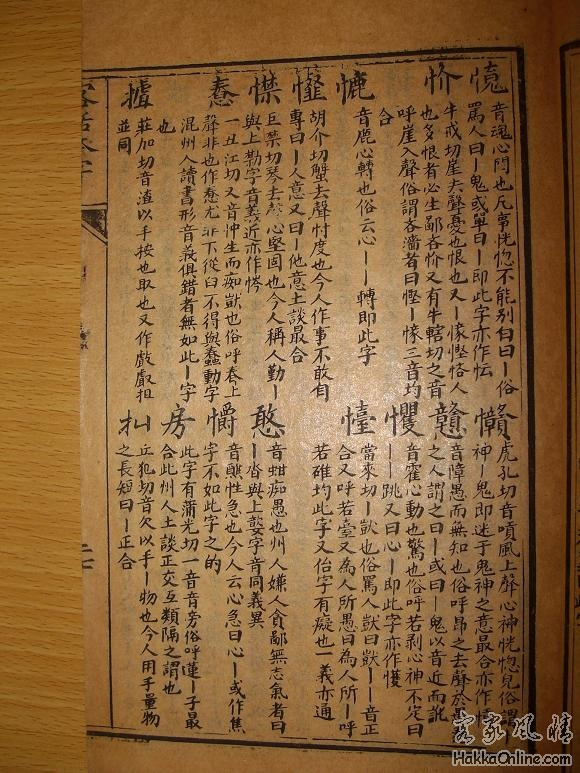 音魂心悶也凡事恍惚不能別白曰丨俗
罵人曰丨鬼或單曰丨即此字亦作忶
忦
牛戒切崖去聲憂也恨也又丨慳悋人
也多恨者必生鄙吝忦又有牛轄切之音
呼崖入聲俗謂吝濇者曰慳丨三音均
合
音鹿心轉也俗云心丨丨轉即此字
胡介切蟹去聲忖度也今人作事不敢自
專曰丨人意又曰丨他意土談最合
巨禁切琴去聲心堅固也今人稱人勤丨
與上字音義近亦作
惷
一丑江切又音沖生而痴獃也俗呼舂上
聲非也作惷尤非下從臼不得與蠢動字
混州人讀書形音義俱錯者無如此丨字
也
摣
莊加切音渣以手按也取也又作抯
並同
虎孔切音嗊風上聲心神恍惚見俗謂丨
神丨鬼即迷于鬼神之意最合亦作
戇
音障愚而無知也俗呼昂之去聲於
之人謂之曰丨或曰丨鬼以音近而訛
戄
音霍心動也驚也俗呼若剥心神不定曰
丨丨跳又曰心丨即此字亦作
懛
當來切丨獃也俗罵人獃曰獃丨丨音正
合又呼若臺又為人所愚曰為人所丨呼
若碓均此字又佁字有癡也一義亦通
憨
音蚶痴愚也州人嫌人貪鄙無志氣者曰
丨沓與上字音同義異
音醮性急也今人云心急曰心丨或作焦
字不如此字之的
房
此字有蒲光切一音音旁俗呼蓮丨子最
合此州人土談正交互類隔之謂也
丘犯切音欠以手丨物也今人用手量物
之長短曰丨正合
客家風情
HakkaOnline.com